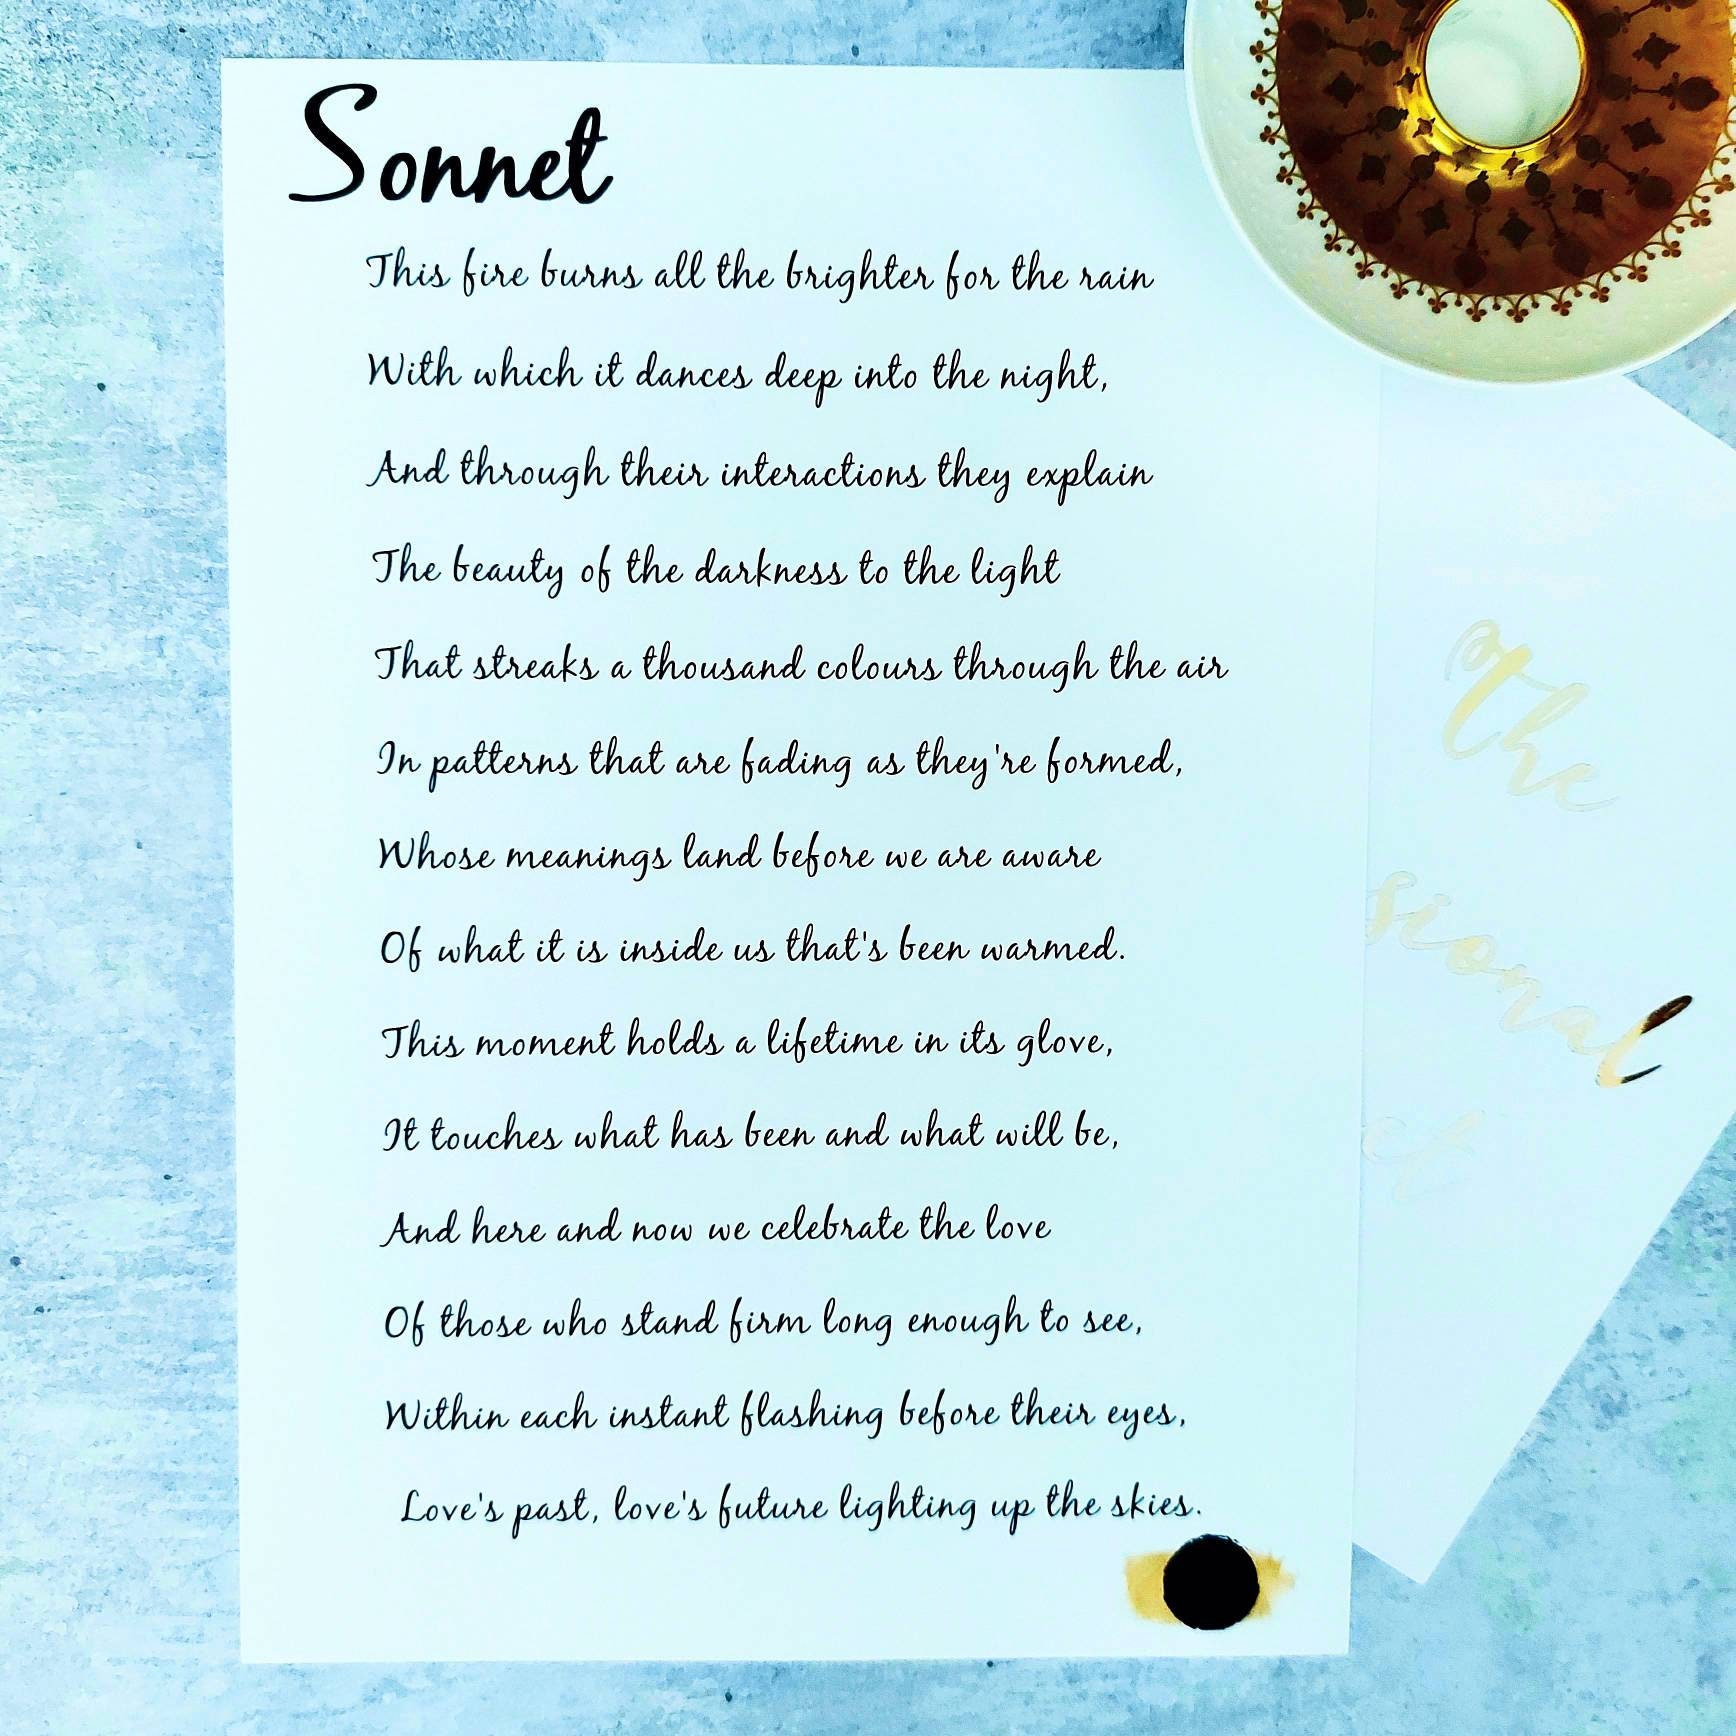 Sonnet
This fire burns all the brighter for the rain
With which it dances deep into the night,
And through their interactions they explain
The beauty of the darkness to the light
That streaks a thousand colours through the air
In patterns that are fading as they're formed,
Whose meanings land before we are aware
Of what it is inside us that's been warmed.
This moment holds a lifetime in its glove,
It touches what has been and what will be,
And here and now we celebrate the love
Of those who stand firm long enough to see,
Within each instant flashing before their eyes,
Love's past, love's future lighting up the skies.
the
sional
et